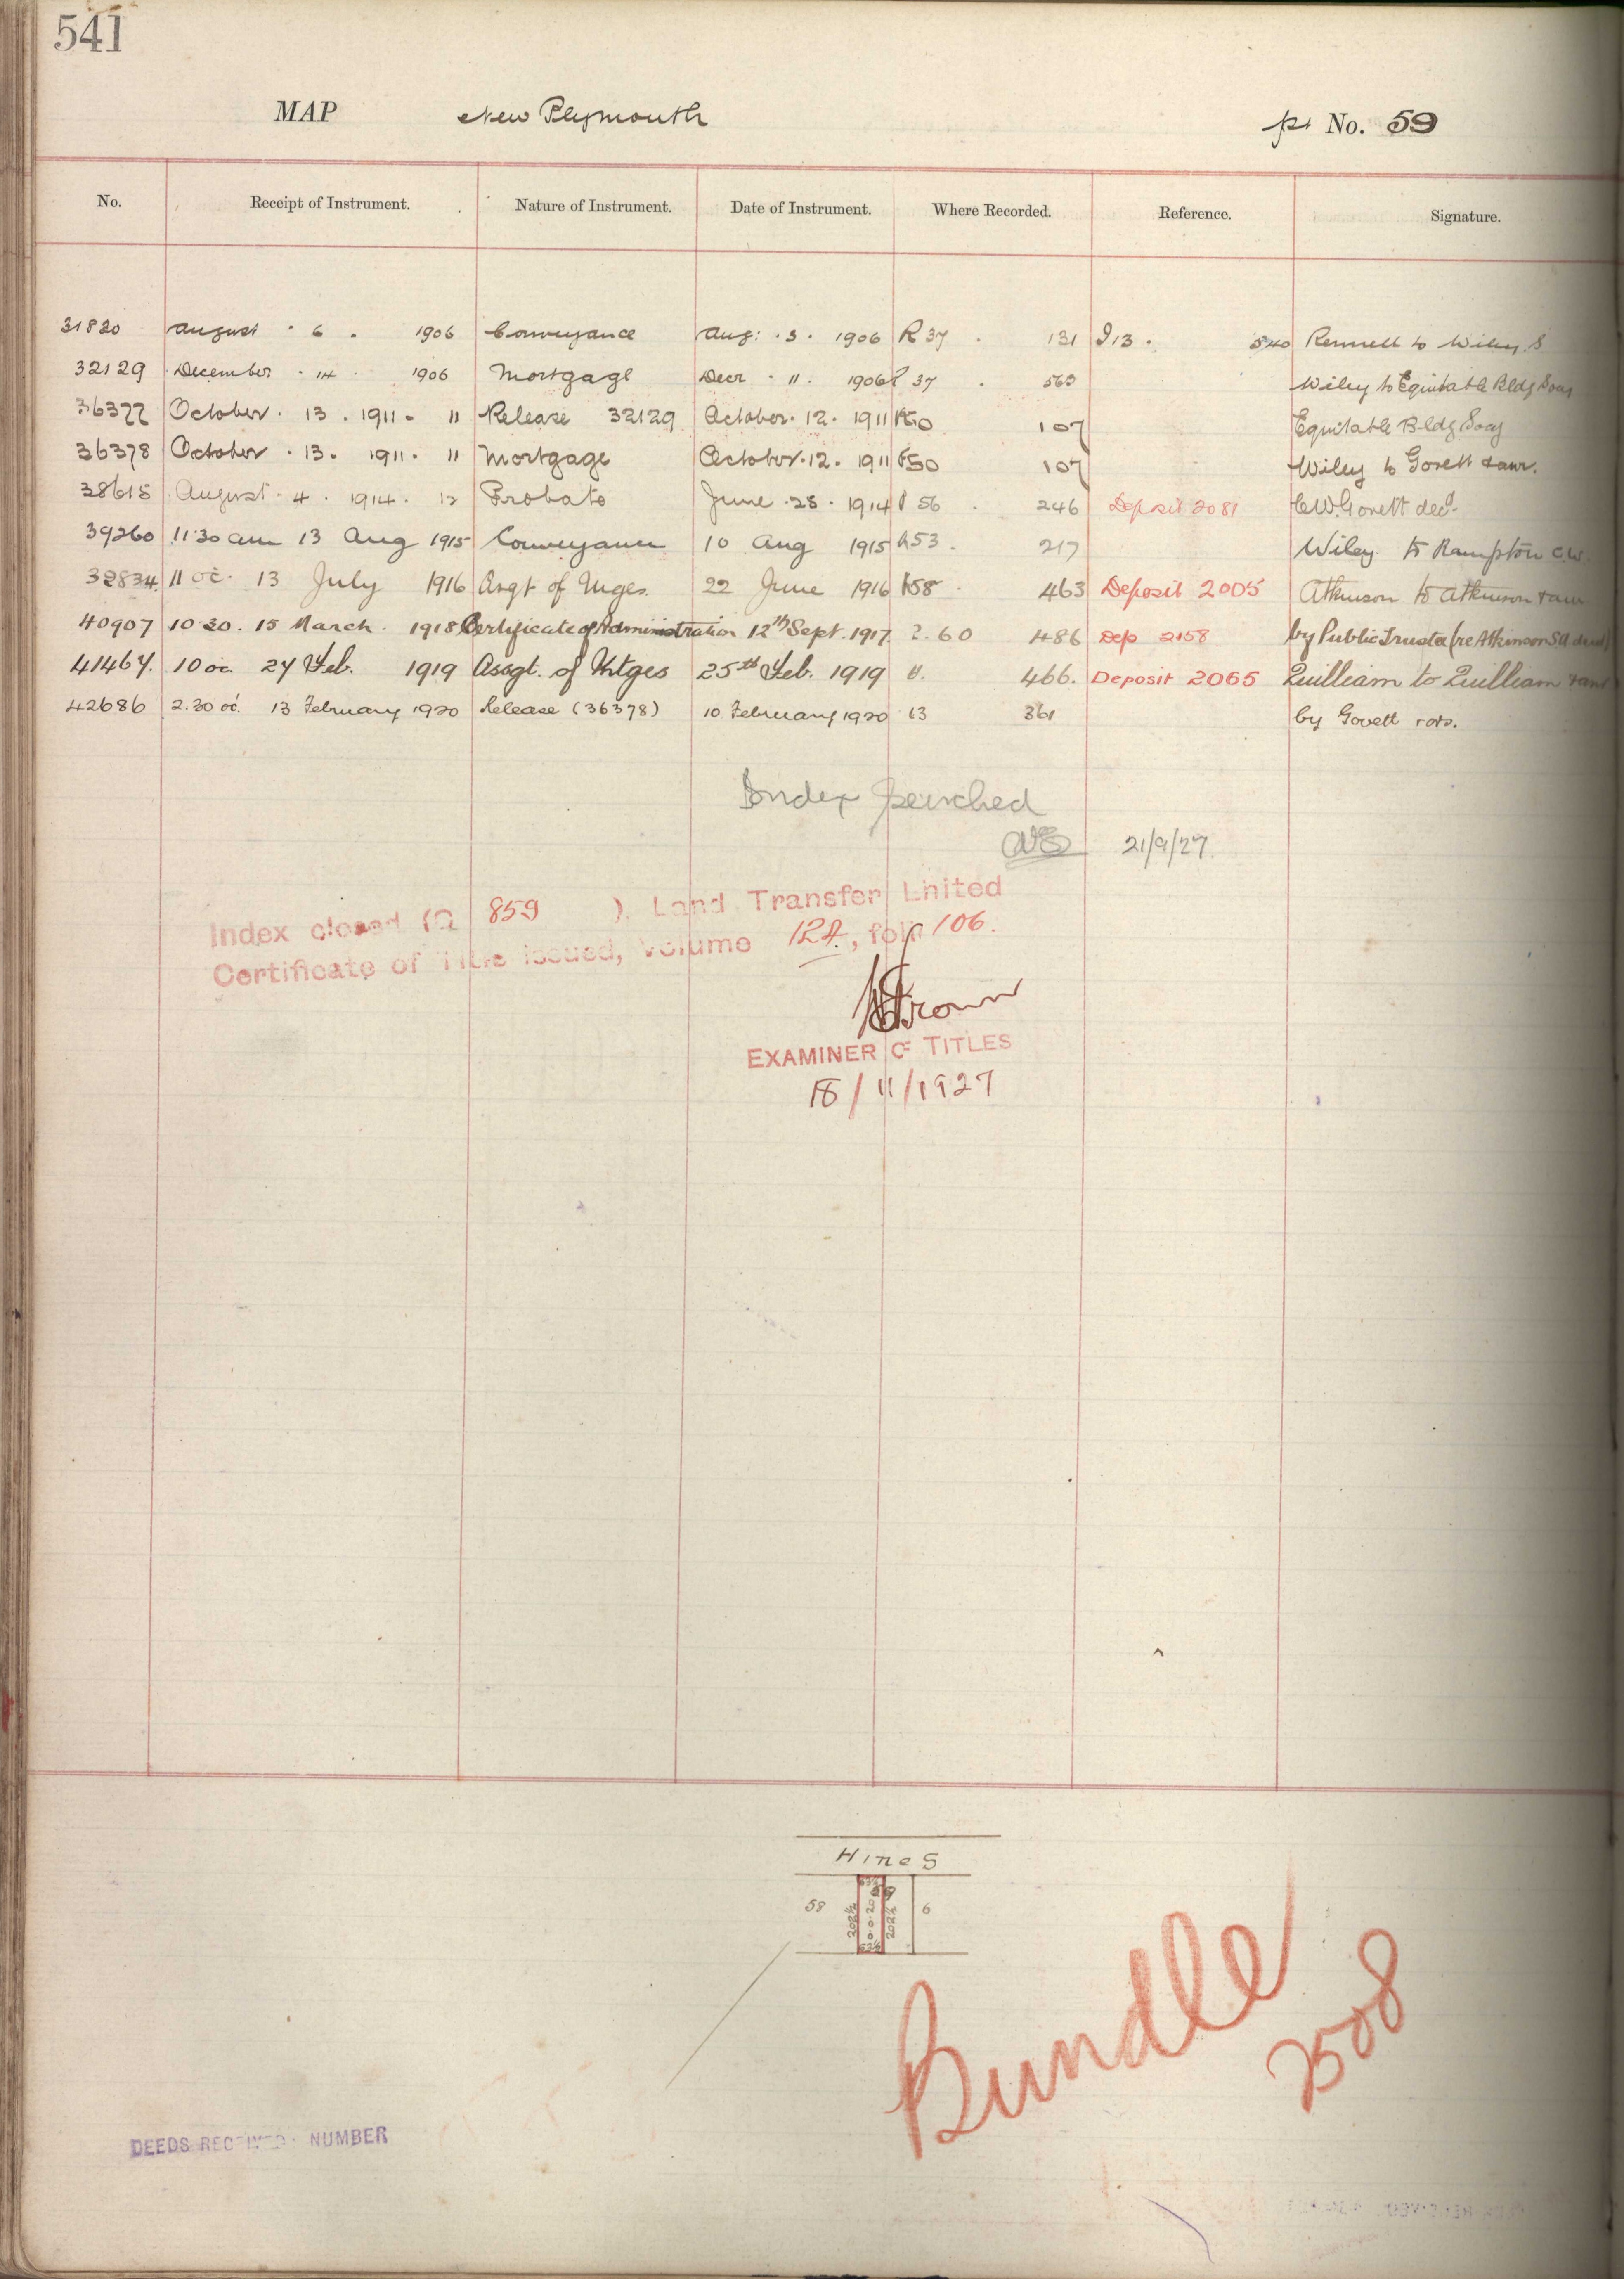 541
MAP New Plymouth pt No. 59
No. Receipt of Instrument. Nature of Instrument. Date of Instrument. Where Recorded. Reference. Signature.
31820 August . 6 . 1906 Conveyance Aug: . 3 . 1906 R 37 . 131 I 13 . 540 Rennell to Wiley. S
32129 December . 14 . 1906 Mortgage Decr . 11 . 1906 R 37 . 563 Wiley to Equitable Bldg Socy
36377 October . 13 . 1911 . 11 Release 32129 October . 12 . 1911 R50 107 Equitable Bldg Socy
36378 October . 13 . 1911 . 11 Mortgage October . 12 . 1911 R50 107 Wiley to Govett & anr.
38615 August . 4 . 1914 . 12 Probate June . 25 . 1914 56 . 246 Deposit 2081 C.W. Govett decd.
39260 11.30 am 13 Aug 1915 Conveyance 10 Aug 1915 R53 . 217 Wiley to Rampton C.W.
11 oc. 13 July 1916 Asgt of Mges. 22 June 1916 R58 . 463 Deposit 2005 Atkinson to Atkinson & anr
40907 10.30 . 15 March . 1918 Certificate of Administration 12th Sept. 1917. 60 486 Dep 2158 by Public Trustee (re Atkinson S.A. decd)
41467. 10 oc. 27 Feb. 1919 Assgt. of Mtges 25th Feb. 1919 466. Deposit 2065 Quilliam to Quilliam & anr
42686 2.30 oc. 13 February 1920 Release (36378) 10 February 1920 63 361 by Govett & ors.
Index Searched
21/9/27.
Index closed (Q 859 ). Land Transfer Limited
Certificate of Title issued, Volume 124, folio 106.
EXAMINER OF TITLES
18/11/1927
Hine S
58 202½ 53½ 0.0.20 53½ 59 202½ 6
Bundle
2508
DEEDS RECEIVED NUMBER